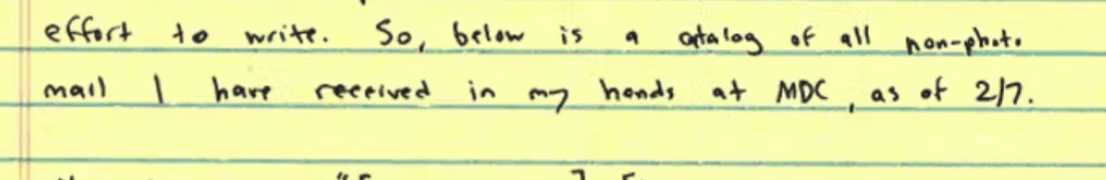 effort to write. So, below is a catalog of all non-photo
mail I have received in my hands at MDC, as of 2/7.